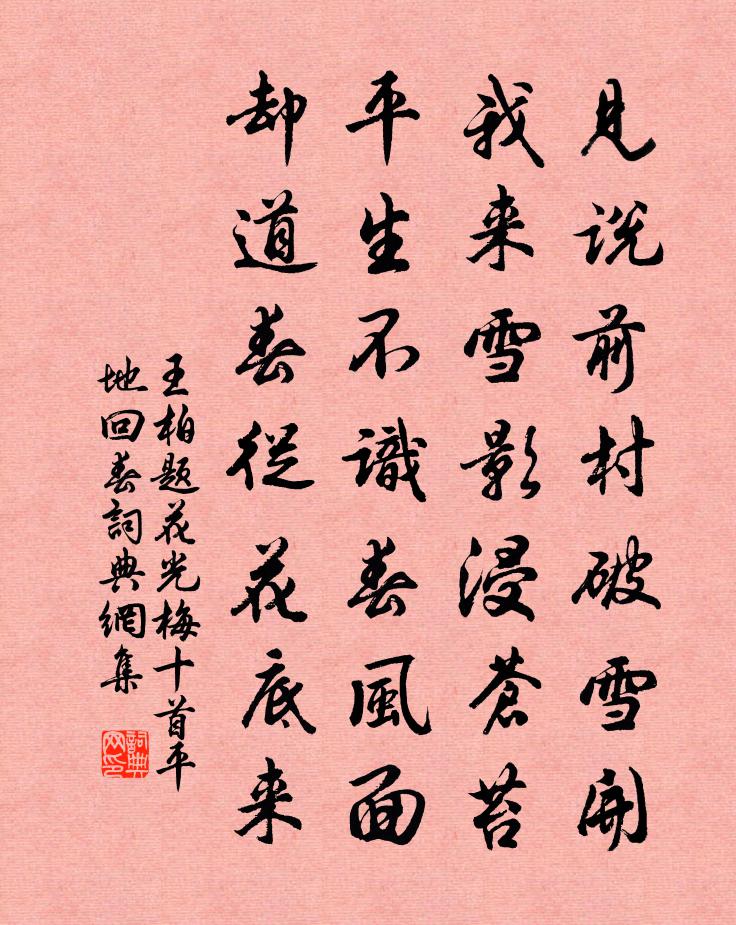 見説前村破雪開
我来雪影浸蒼苔
平生不識春風面
却道春從花底来
王柏题花光梅十首平
地回春詞典網集
詞典
网印